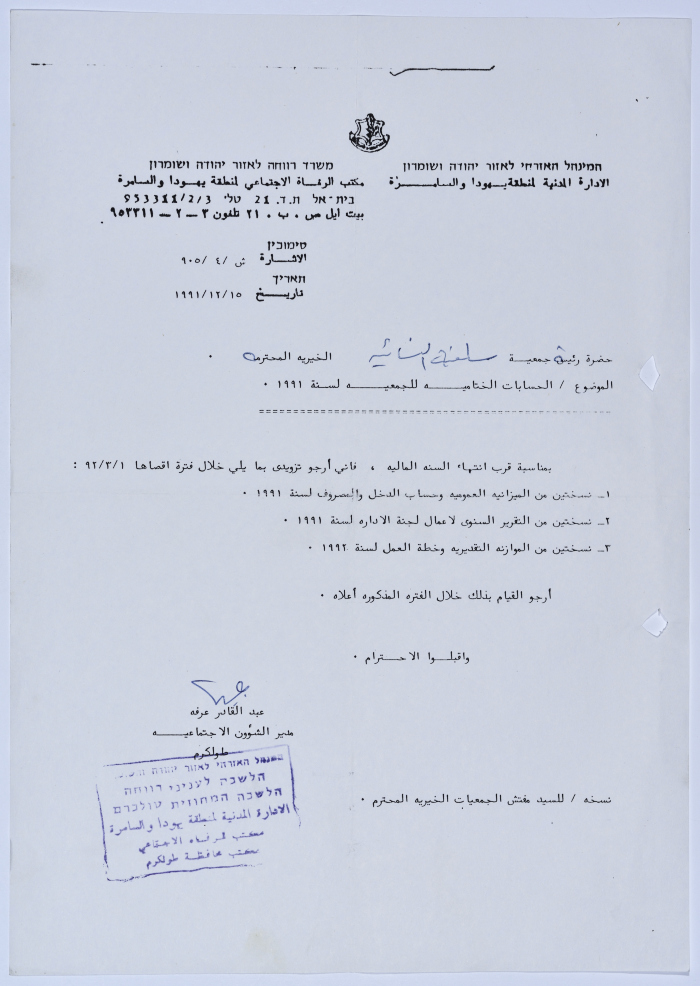 המינהל האזרחי לאזור יהודה ושומרון
الادارة المدنية لمنطقة يهودا والسامرة
משרד רווחה לאזור יהודה ושומרון
مكتب الرفاة الاجتماعي لمنطقة يهودا والسامرة
בית-אל ת.ד. 21 טלי 953311/2/3
بيت ايل ص . ب . ٢١ تلفون ٣ - ٢ - ٩٥٣٣١١
סימוכין
الاشارة ش /٤ /٩٠٥
תאריך
تاريخ ١٩٩١/١٢/١٥
حضرة رئيسة جمعية سلفيت النسائيه الخيريه المحترمه .
الموضوع / الحسابات الختاميه للجمعيه لسنة ١٩٩١ .
بمناسبة قرب انتهاء السنه الماليه ، فاني أرجو تزويدى بما يلي خلال فترة اقصاها ٩٢/٣/١ :
١- نسختين من الميزانيه العموميه وحساب الدخل والمصروف لسنة ١٩٩١ .
٢- نسختين من التقرير السنوى لاعمال لجنة الاداره لسنة ١٩٩١ .
٣- نسختين من الموازنه التقديريه وخطة العمل لسنة ١٩٩٢ .
أرجو القيام بذلك خلال الفتره المذكوره أعلاه .
واقبلوا الاحترام .
عبد القادر عرفه
مدير الشؤون الاجتماعيه
طولكرم
המינהל האזרחי לאזור יהודה
הלשכה לעניני רווחה
הלשכה המחוזית טולכרם
الادارة المدنية لمنطقة يهودا والسامرة
مكتب الرفاه الاجتماعي
مكتب محافظة طولكرم
نسخه / للسيد مفتش الجمعيات الخيريه المحترم .